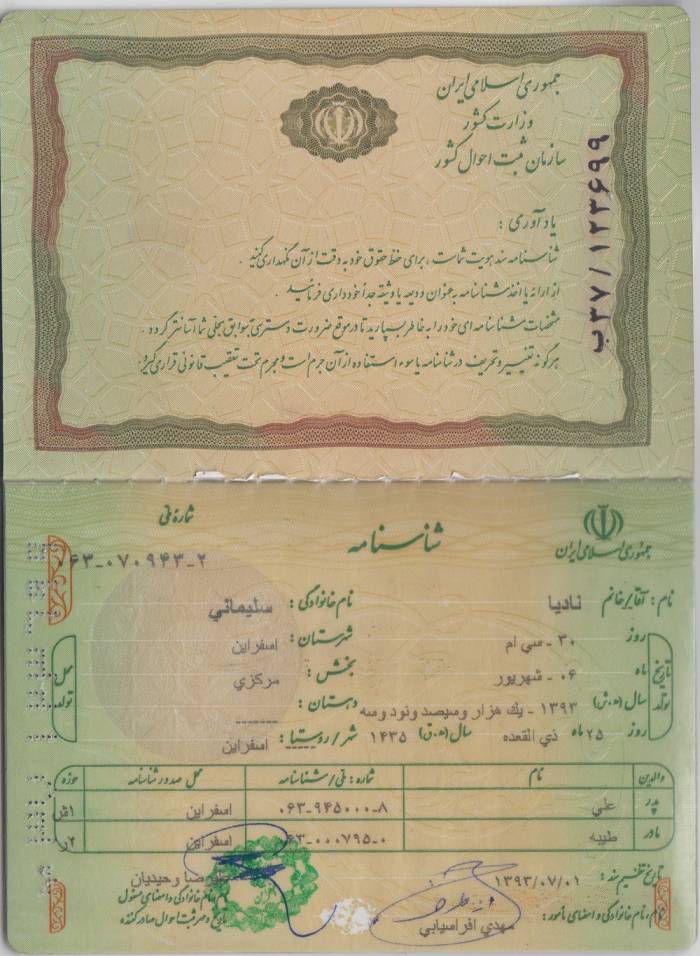 جمهوری اسلامی ایران
وزارت کشور
سازمان ثبت احوال کشور
ب۳۷/۱۲۳۶۹۹
یادآوری :
شناسنامه سند هویت شماست ، برای حفظ حقوق خود به دقت از آن نگهداری کنید .
از ارائه یا اخذ شناسنامه به عنوان ودیعه یا وثیقه جداً خودداری فرمائید .
مشخصات شناسنامه ای خود را به خاطر بسپارید تا در موقع ضرورت دسترسی به سوابق سجلی شما آسانتر گردد .
هرگونه تغییر و تحریف در شناسنامه یا سوء استفاده از آن جرم است و مجرم تحت تعقیب قانونی قرار می گیرد.
جمهوری اسلامی ایران
شناسنامه
شماره ملی
۰۶۳-۰۷۰۹۴۳-۲
نام : آقا/خانم نادیا نام خانوادگی : سلیمانی
تاریخ تولد
روز ۳۰ - سی ام شهرستان : اسفراین
ماه ۰۶ - شهریور بخش : مرکزی
سال (ه.ش) ۱۳۹۳ - یك هزار وسیصد ونود وسه دهستان : -------
روز ۲۵ ماه ذي القعده سال (ه.ق) ۱۴۳۵ شهر/روستا : اسفراین
محل تولد
والدین نام شماره : ملی/شناسنامه محل صدور شناسنامه حوزه
پدر علي ۰۶۳-۹۴۵۰۰۰-۸ اسفراین ۱ش
مادر طیبه ۰۶۳-۰۰۰۷۹۵-۰ اسفراین ۲ر
تاریخ تنظیم سند : ۱۳۹۳/۰۷/۰۱
وحیدیان
نام، نام خانوادگی و امضای مأمور : مهدي افراسیابي
نام و نام خانوادگی و امضای مسئول
و مهر ثبت احوال صادرکننده